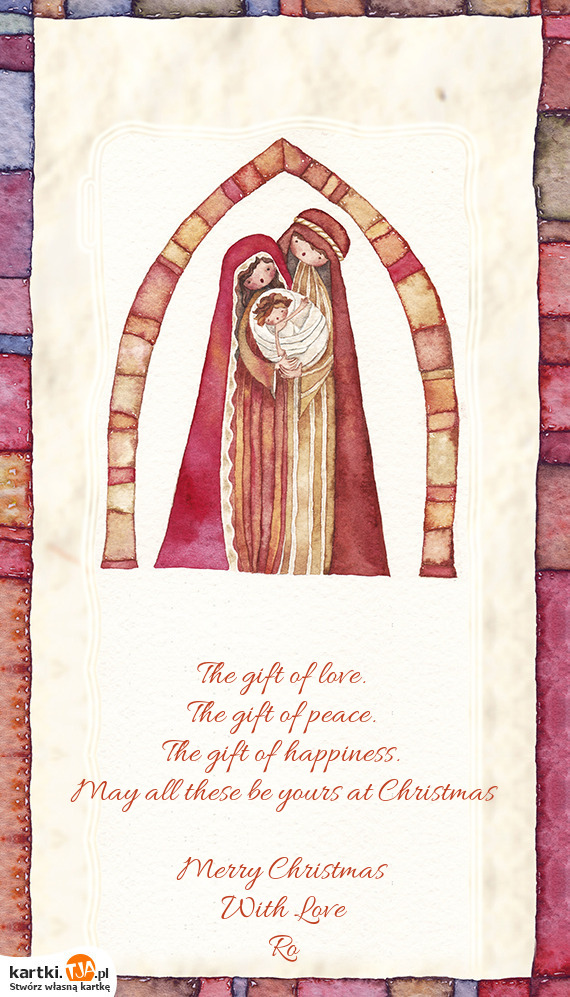 The gift of love.
The gift of peace.
The gift of happiness.
May all these be yours at Christmas
Merry Christmas
With Love
Ro
kartki.TJA.pl
Stwórz własną kartkę